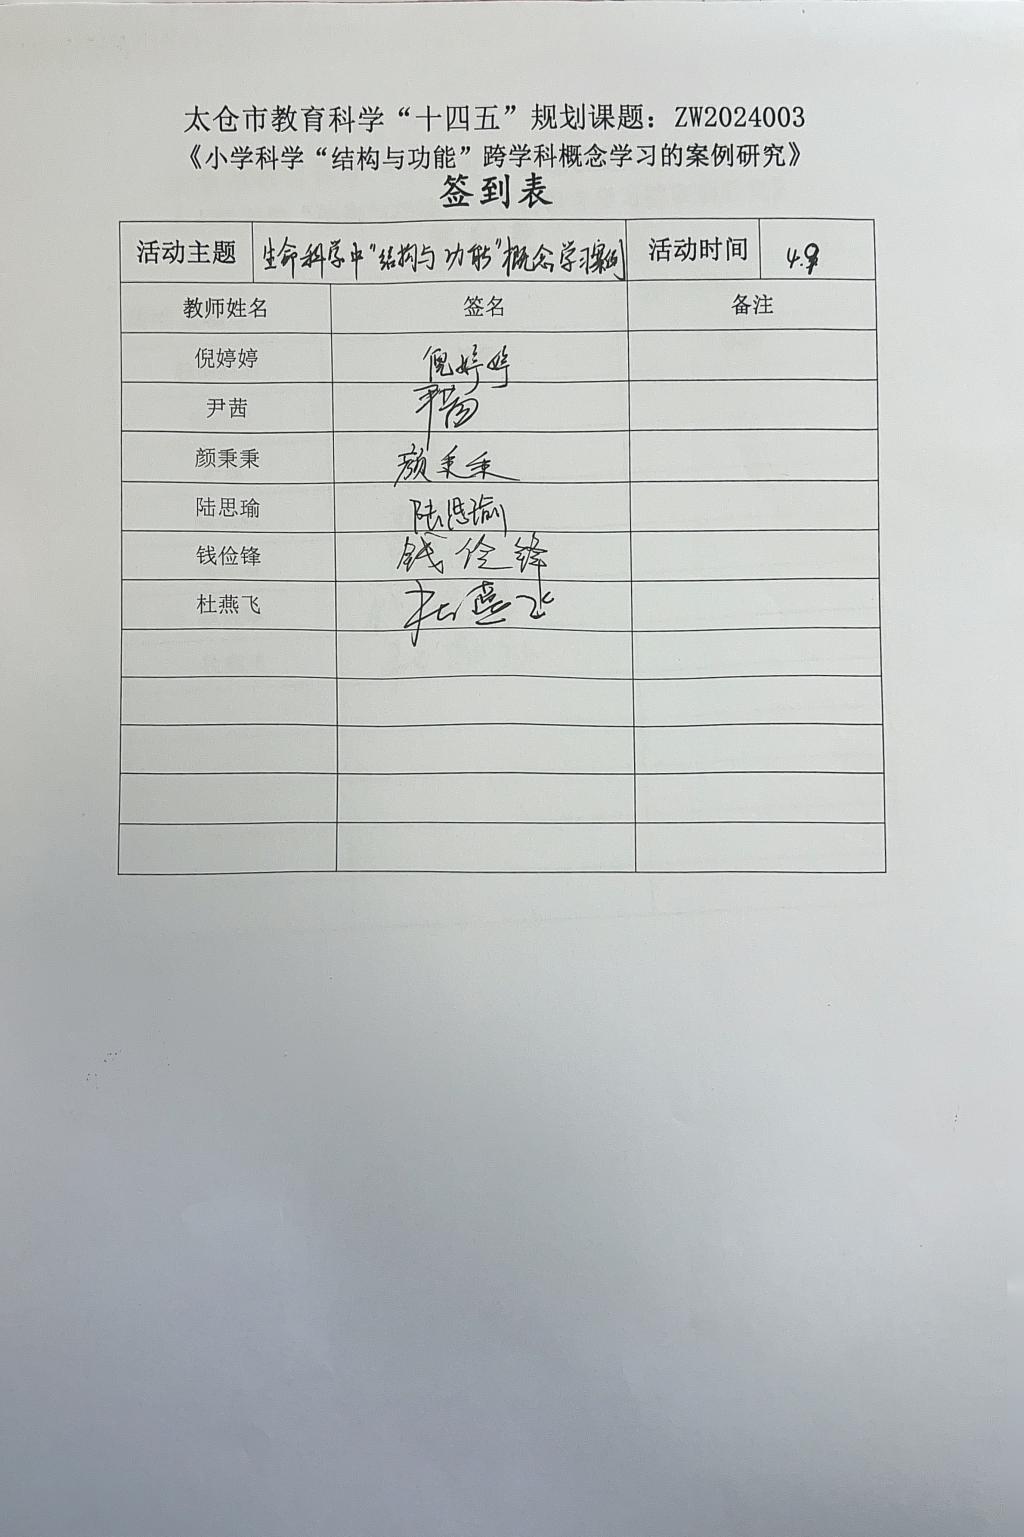 太仓市教育科学“十四五”规划课题：ZW2024003
《小学科学“结构与功能”跨学科概念学习的案例研究》
签到表
活动主题 生命科学中“结构与功能”概念学习案例 活动时间 4.9
教师姓名 签名 备注
倪婷婷 倪婷婷
尹茜 尹茜
颜秉秉 颜秉秉
陆思瑜 陆思瑜
钱俭锋 钱俭锋
杜燕飞 杜燕飞